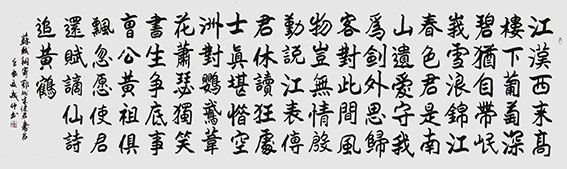 江漢西來高
樓下葡萄深
碧猶自帶岷
峩雪浪錦江
春色君是南
山遺愛守我
爲劍外思歸
客對此間風
物豈無情殷
勤説江表傳
君休讀狂處
士眞堪惜空
洲對鸚鵡葦
花蕭瑟獨笑
書生爭底事
曹公黃祖俱
飄忽愿使君
還賦謫仙詩
追黃鶴
蘇軾詞寄鄂州朱使君壽昌